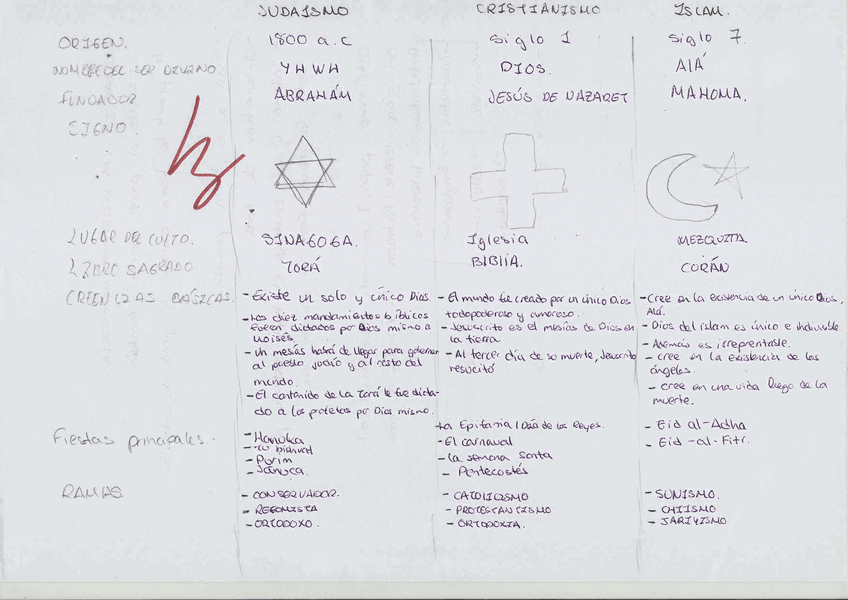 JUDAISMO CRISTIANISMO ISLAM.
ORIGEN. 1800 a.C siglo 1 siglo 7.
NOMBRE DEL SER DIVINO YHWH DIOS. Alá
FUNDADOR ABRAHÁM JESÚS DE NAZARET MAHOMA.
SIGNO
LUGAR DEL CULTO. SINAGOGA. Iglesia MEZQUITA
LIBRO SAGRADO TORÁ BIBlIA. CORÁN
CREENCIAS BÁSICAS.
- Existe un solo y único Dios.
- Los diez mandamientos bíblicos
fueron dictados por Dios mismo a
Moisés.
- Un mesías habrá de llegar para gobernar
al pueblo judío y al resto del
mundo.
- El contenido de la Torá le fue dicta-
do a los profetas por Dios mismo.
- El mundo fue creado por un único Dios
todopoderoso y amoroso.
- Jesucristo es el mesías de Dios en
la tierra.
- Al tercer día de su muerte, Jesucristo
resucitó
- Cree en la existencia de un único Dios,
Alá.
- Dios del islam es único e indivisible.
- Además es irrepresentable.
- cree en la existencia de los
ángeles.
- cree en una vida luego de la
muerte.
Fiestas principales.
- Hanuka
- Purim
- Janucá.
-La Epifanía / Día de los Reyes.
- El carnaval
- La semana Santa
- Pentecostés
- Eid al-Adha
- Eid -al-Fitr.
RAMAS
- CONSERVADOR.
- REFOMISTA
- ORTODOXO.
- CATOLICISMO
- PROTESTANTISMO
- ORTODOXIA.
- SUNISMO.
- CHIISMO
- JARIYISMO